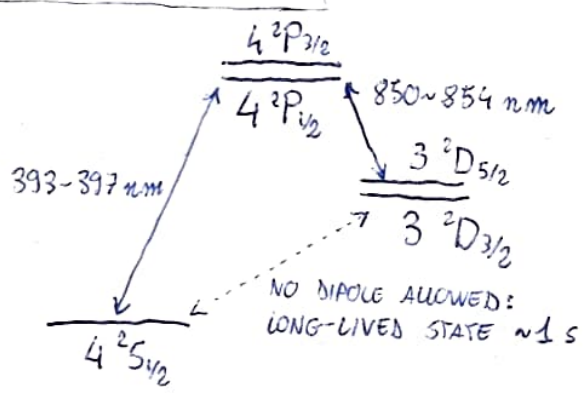 4 ²P3/2
4 ²P1/2
850~854 nm
393-397 nm
3 ²D5/2
3 ²D3/2
NO DIPOLE ALLOWED:
LONG-LIVED STATE ~1 s
4 ²S1/2